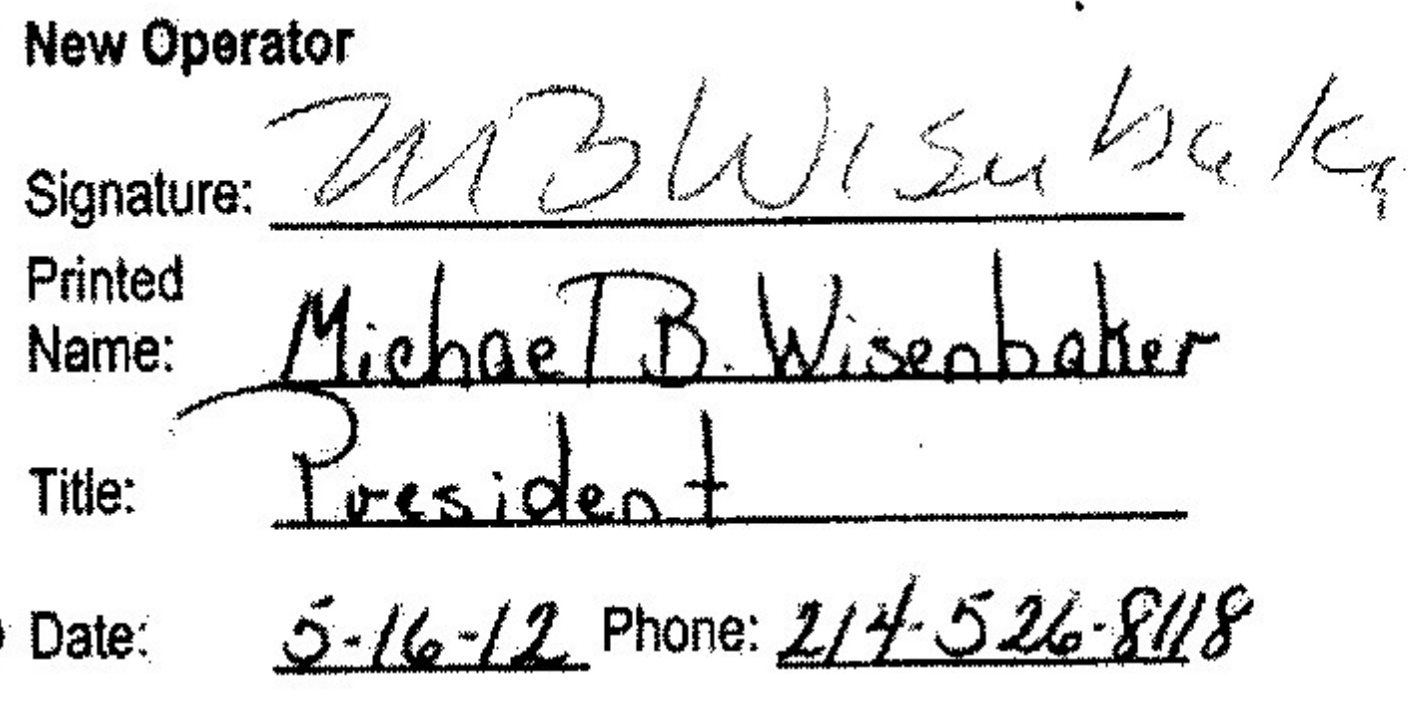 New Operator
Signature: MB Wisenbaker
Printed
Name: Michael B. Wisenbaker
Title: President
Date: 5-16-12 Phone: 214-526-8118